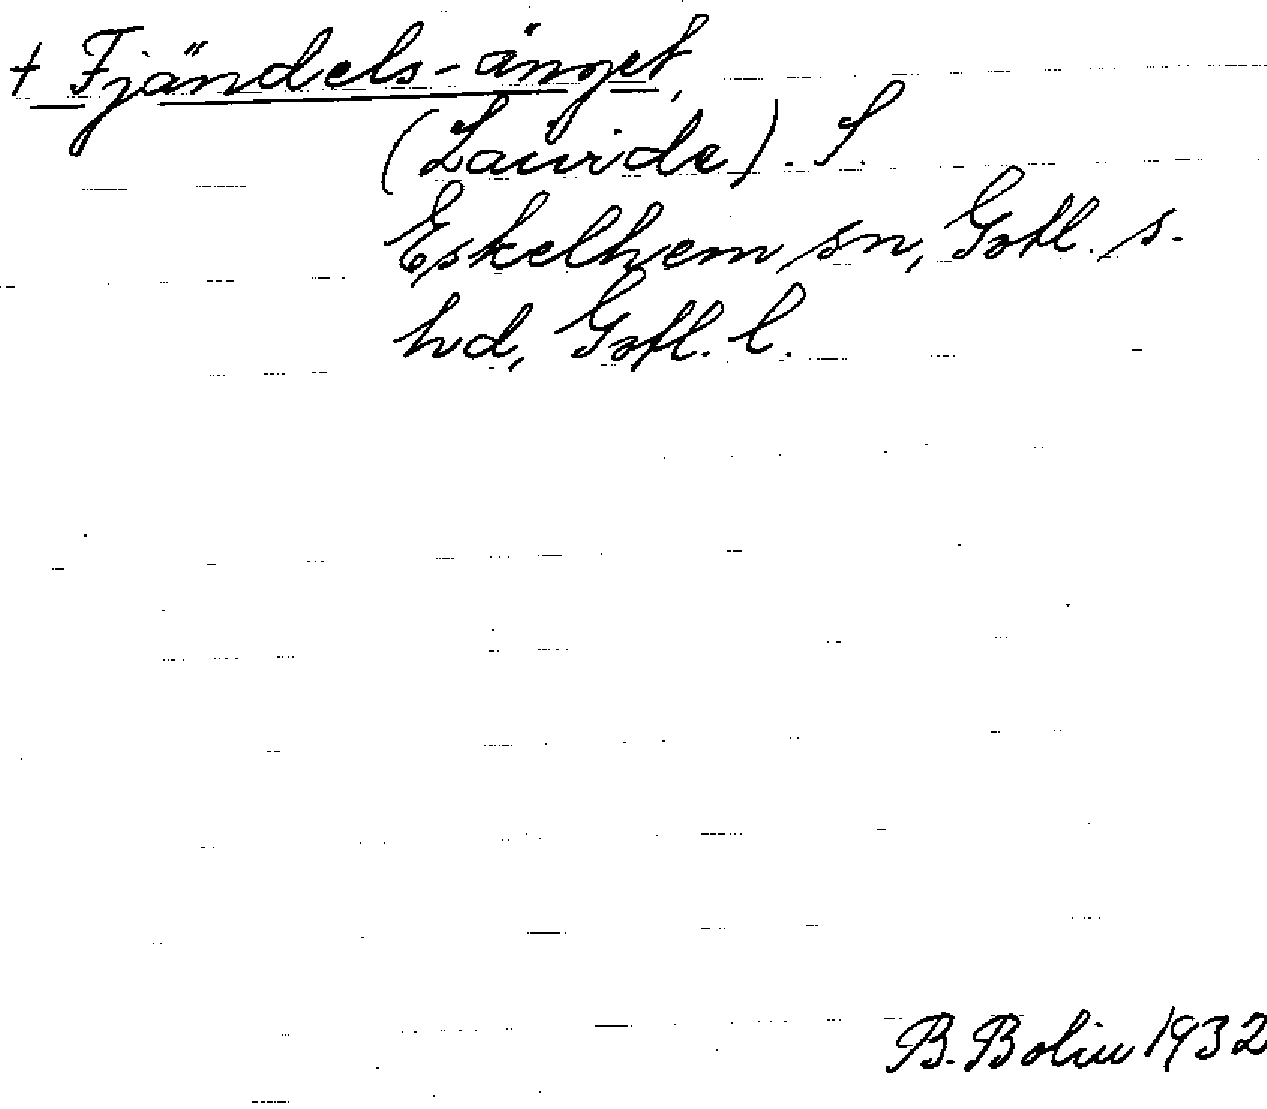 † Fjändels-änget,
(Lauride). S.
Eskelhem sn, Gotl. s.
hd, Gotl. l.
B. Bolin 1932